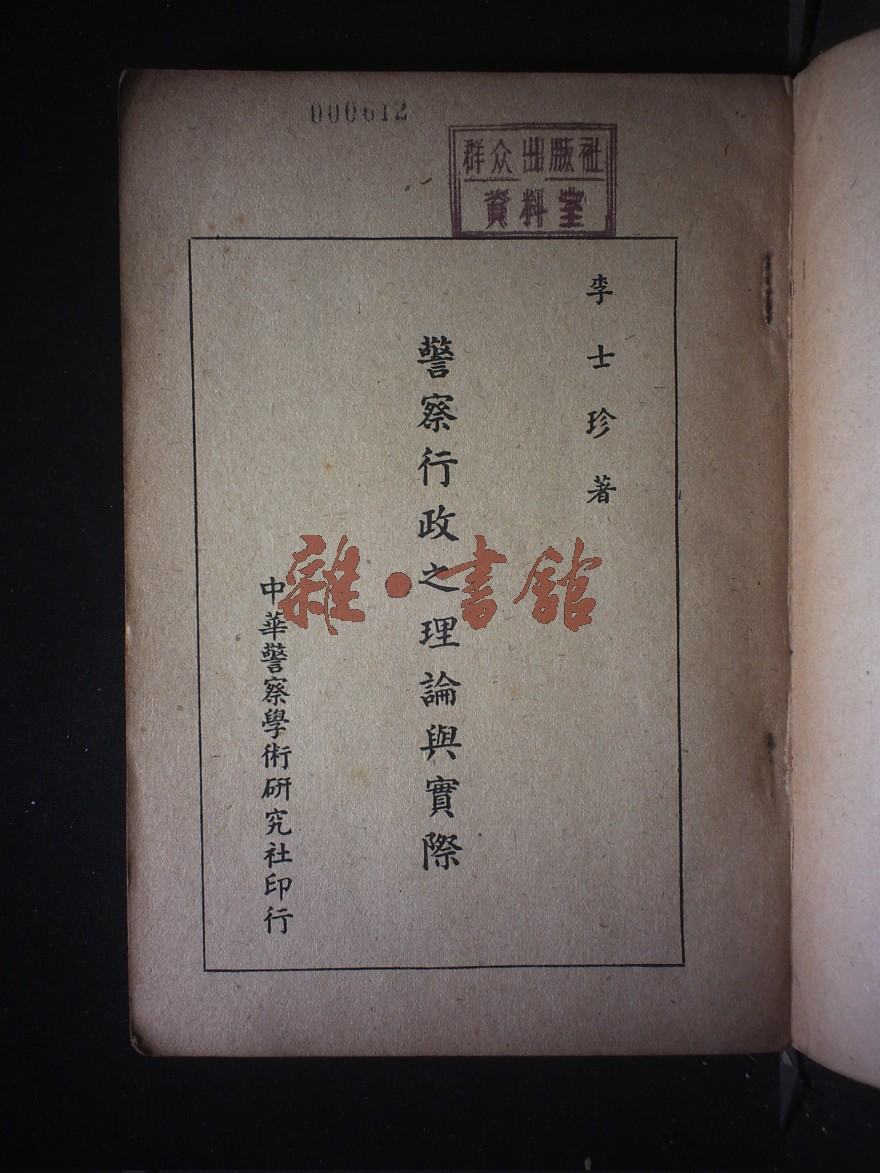 000612
群众出版社
資料室
李士珍著
警察行政之理論與實際
中華警察學術研究社印行
雜·書館